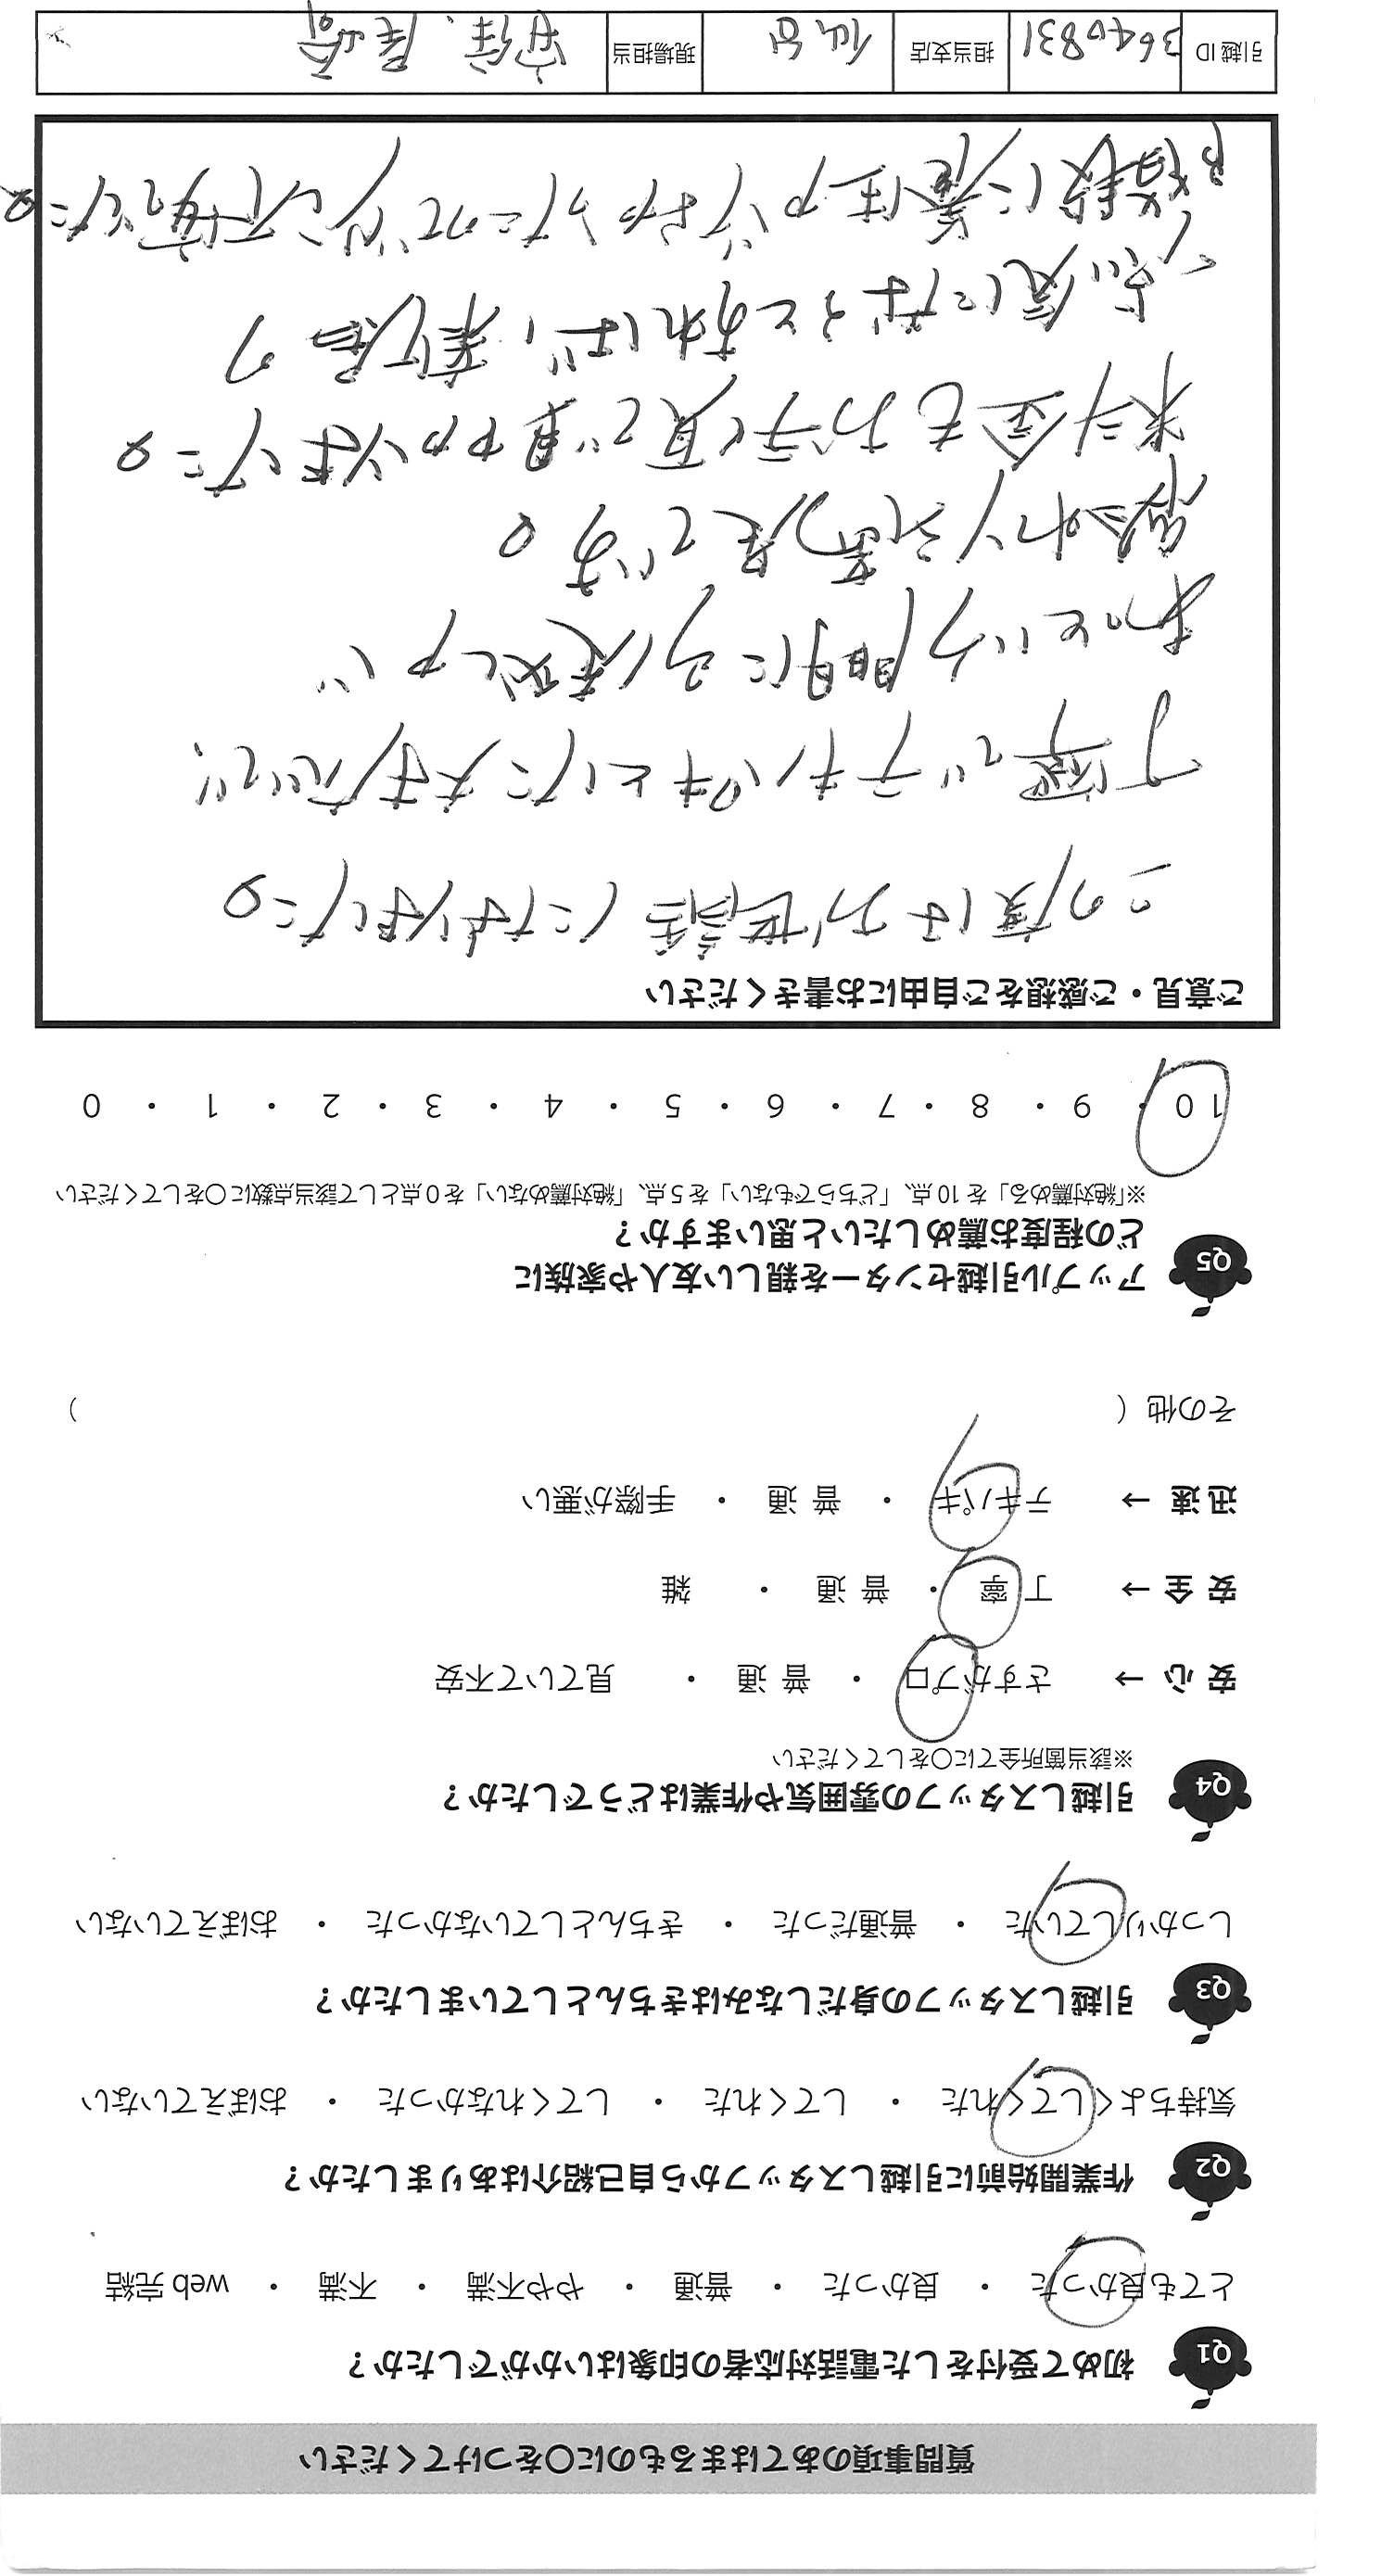 質問事項のあてはまるものに〇をつけてください
Q1 初めて受付をした電話対応者の印象はいかがでしたか？
とても良かった ・ 良かった ・ 普通 ・ やや不満 ・ 不満 ・ web 完結
Q2 作業開始前に引越しスタッフから自己紹介はありましたか？
気持ちよくしてくれた ・ してくれた ・ してくれなかった ・ おぼえていない
Q3 引越しスタッフの身だしなみはきちんとしていましたか？
しっかりしていた ・ 普通だった ・ きちんとしていなかった ・ おぼえていない
Q4 引越しスタッフの雰囲気や作業はどうでしたか？
※該当箇所全てに〇をしてください
安 心 → さすがプロ ・ 普 通 ・ 見ていて不安
安 全 → 丁 寧 ・ 普 通 ・ 雑
迅 速 → テキパキ ・ 普 通 ・ 手際が悪い
その他（ ）
Q5 アップル引越センターを親しい友人や家族に
どの程度お薦めしたいと思いますか？
※「絶対薦める」を 10 点、「どちらでもない」を 5 点、「絶対薦めない」を 0 点として該当点数に〇をしてください
10 ・ 9 ・ 8 ・ 7 ・ 6 ・ 5 ・ 4 ・ 3 ・ 2 ・ 1 ・ 0
ご意見・ご感想をご自由にお書きください
この度はお世話になりました。
丁寧でテキパキとした対応で、
あっという間に引越しが
終わり満足です。
料金もお手頃で良かったです。
一点気になるとあれば、養生の
階段に養生がなかったので少し不安でした。
引越 ID 3640831 担当支店 仙台 現場担当 安住、尾崎